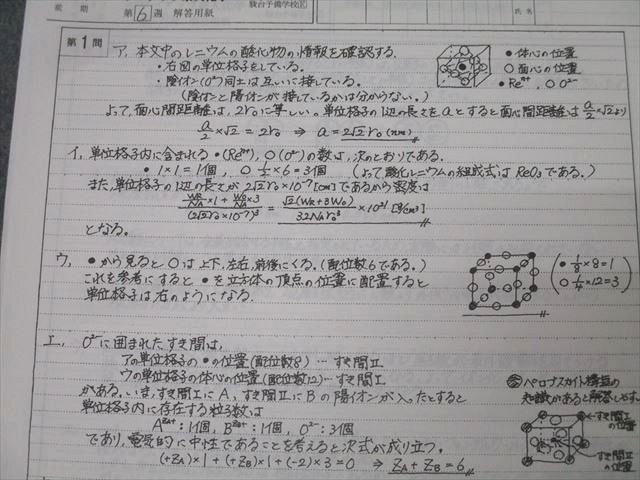 後期 第6週 解答用紙
駿台予備学校
氏名
第1問
ア. 本文中のレニウムの酸化物の情報を確認する.
・右図の単位格子をしている.
・陰イオン(O²⁻)同士は互いに接している.
(陰イオンと陽イオンが接しているかは分からない.)
● 体心の位置
○ 面心の位置
● Reⁿ⁺, ○ O²⁻
よって, 面心間距離は, 2r₀に等しい. 単位格子の1辺の長さをaとすると面心間距離は a/2×√2より
a/2×√2 = 2r₀ ⇒ a = 2√2r₀ (nm)
イ. 単位格子内に含まれる ●(Reⁿ⁺), ○(O²⁻)の数は, 次のとおりである.
● 1×1=1個, ○ 1/2×6=3個 (よって酸化レニウムの組成式は ReO₃である.)
また, 単位格子の1辺の長さが 2√2r₀×10⁻⁷[cm]であるから密度は
となる.
ウ. ●から見ると○は上下, 左右, 前後にくる. (配位数6である.)
これを参考にすると ●を立方体の頂点の位置に配置すると
単位格子は右のようになる.
● 1/8×8=1
○ 1/4×12=3
エ. O²⁻に囲まれたすき間は,
アの単位格子の●の位置(配位数8) … すき間Ⅱ
ウの単位格子の体心の位置(配位数12)… すき間Ⅰ
がある. いま, すき間ⅠにA, すき間ⅡにBの陽イオンが入ったとすると
単位格子内に存在する粒子数は
A^{ZA+}:1個, B^{ZB+}:1個, O²⁻:3個
であり, 電気的に中性であることを考えると次式が成り立つ.
(+Z_A)×1+(+Z_B)×1+(-2)×3=0 ⇒ Z_A+Z_B=6
参 ペロブスカイト構造の
知識があると解答しやす.
すき間Ⅰ
の位置
すき間Ⅱ
の位置